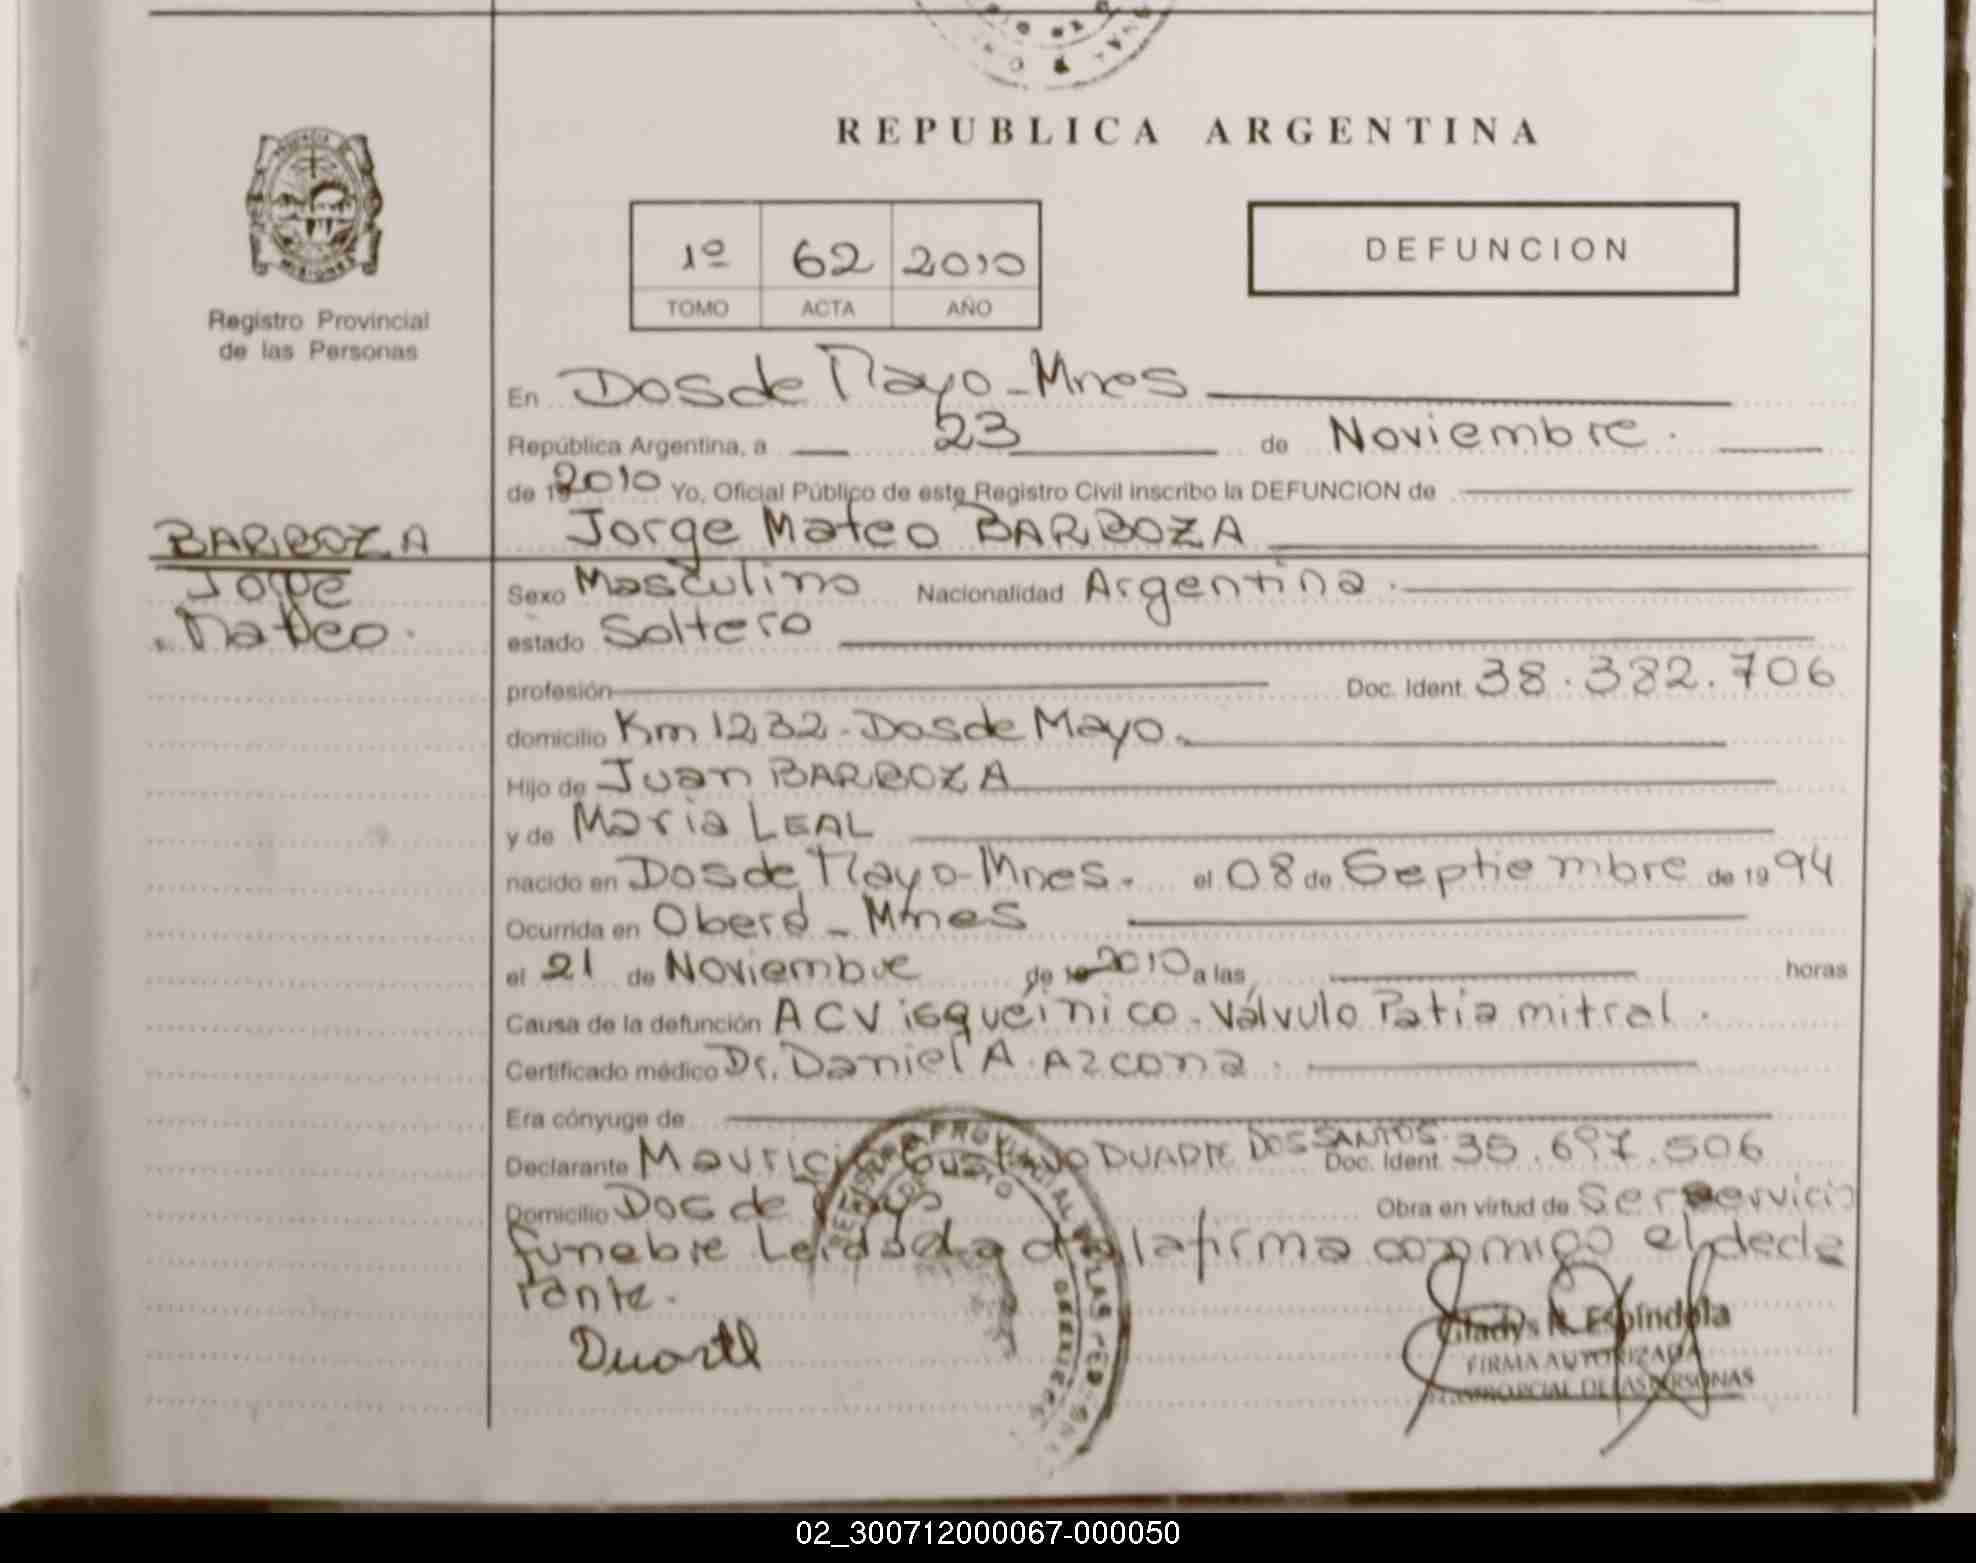 REPUBLICA ARGENTINA
1º 62 2010
TOMO ACTA AÑO
DEFUNCION
Registro Provincial
de las Personas
En Dos de Mayo - Mnes
República Argentina, a 23 de Noviembre.
de 19 2010 Yo, Oficial Público de este Registro Civil inscribo la DEFUNCION de
BARBOZA
Jorge
Mateo.
Jorge Mateo BARBOZA
Sexo Masculino Nacionalidad Argentina.
estado Soltero
profesión Doc. Ident. 38.382.706
domicilio Km 1232 - Dos de Mayo.
Hijo de Juan BARBOZA
y de Maria LEAL
nacido en Dos de Mayo - Mnes. el 08 de Septiembre de 19 94
Ocurrida en Oberá - Mnes
el 21 de Noviembre de 2010 a las horas
Causa de la defunción ACV isquéinico - Válvulo Patia mitral.
Certificado médico Dr. Daniel A. Azcona.
Era cónyuge de
Declarante Mauricio Gustavo DUARTE DOS SANTOS Doc. Ident. 35.697.506
Domicilio Dos de Mayo Obra en virtud de Ser servicio
funebre Leida el a la firma conmigo el decla
rante.
Duarte
Gladys R. Espíndola
FIRMA AUTORIZADA
DE LAS PERSONAS
02_300712000067-000050